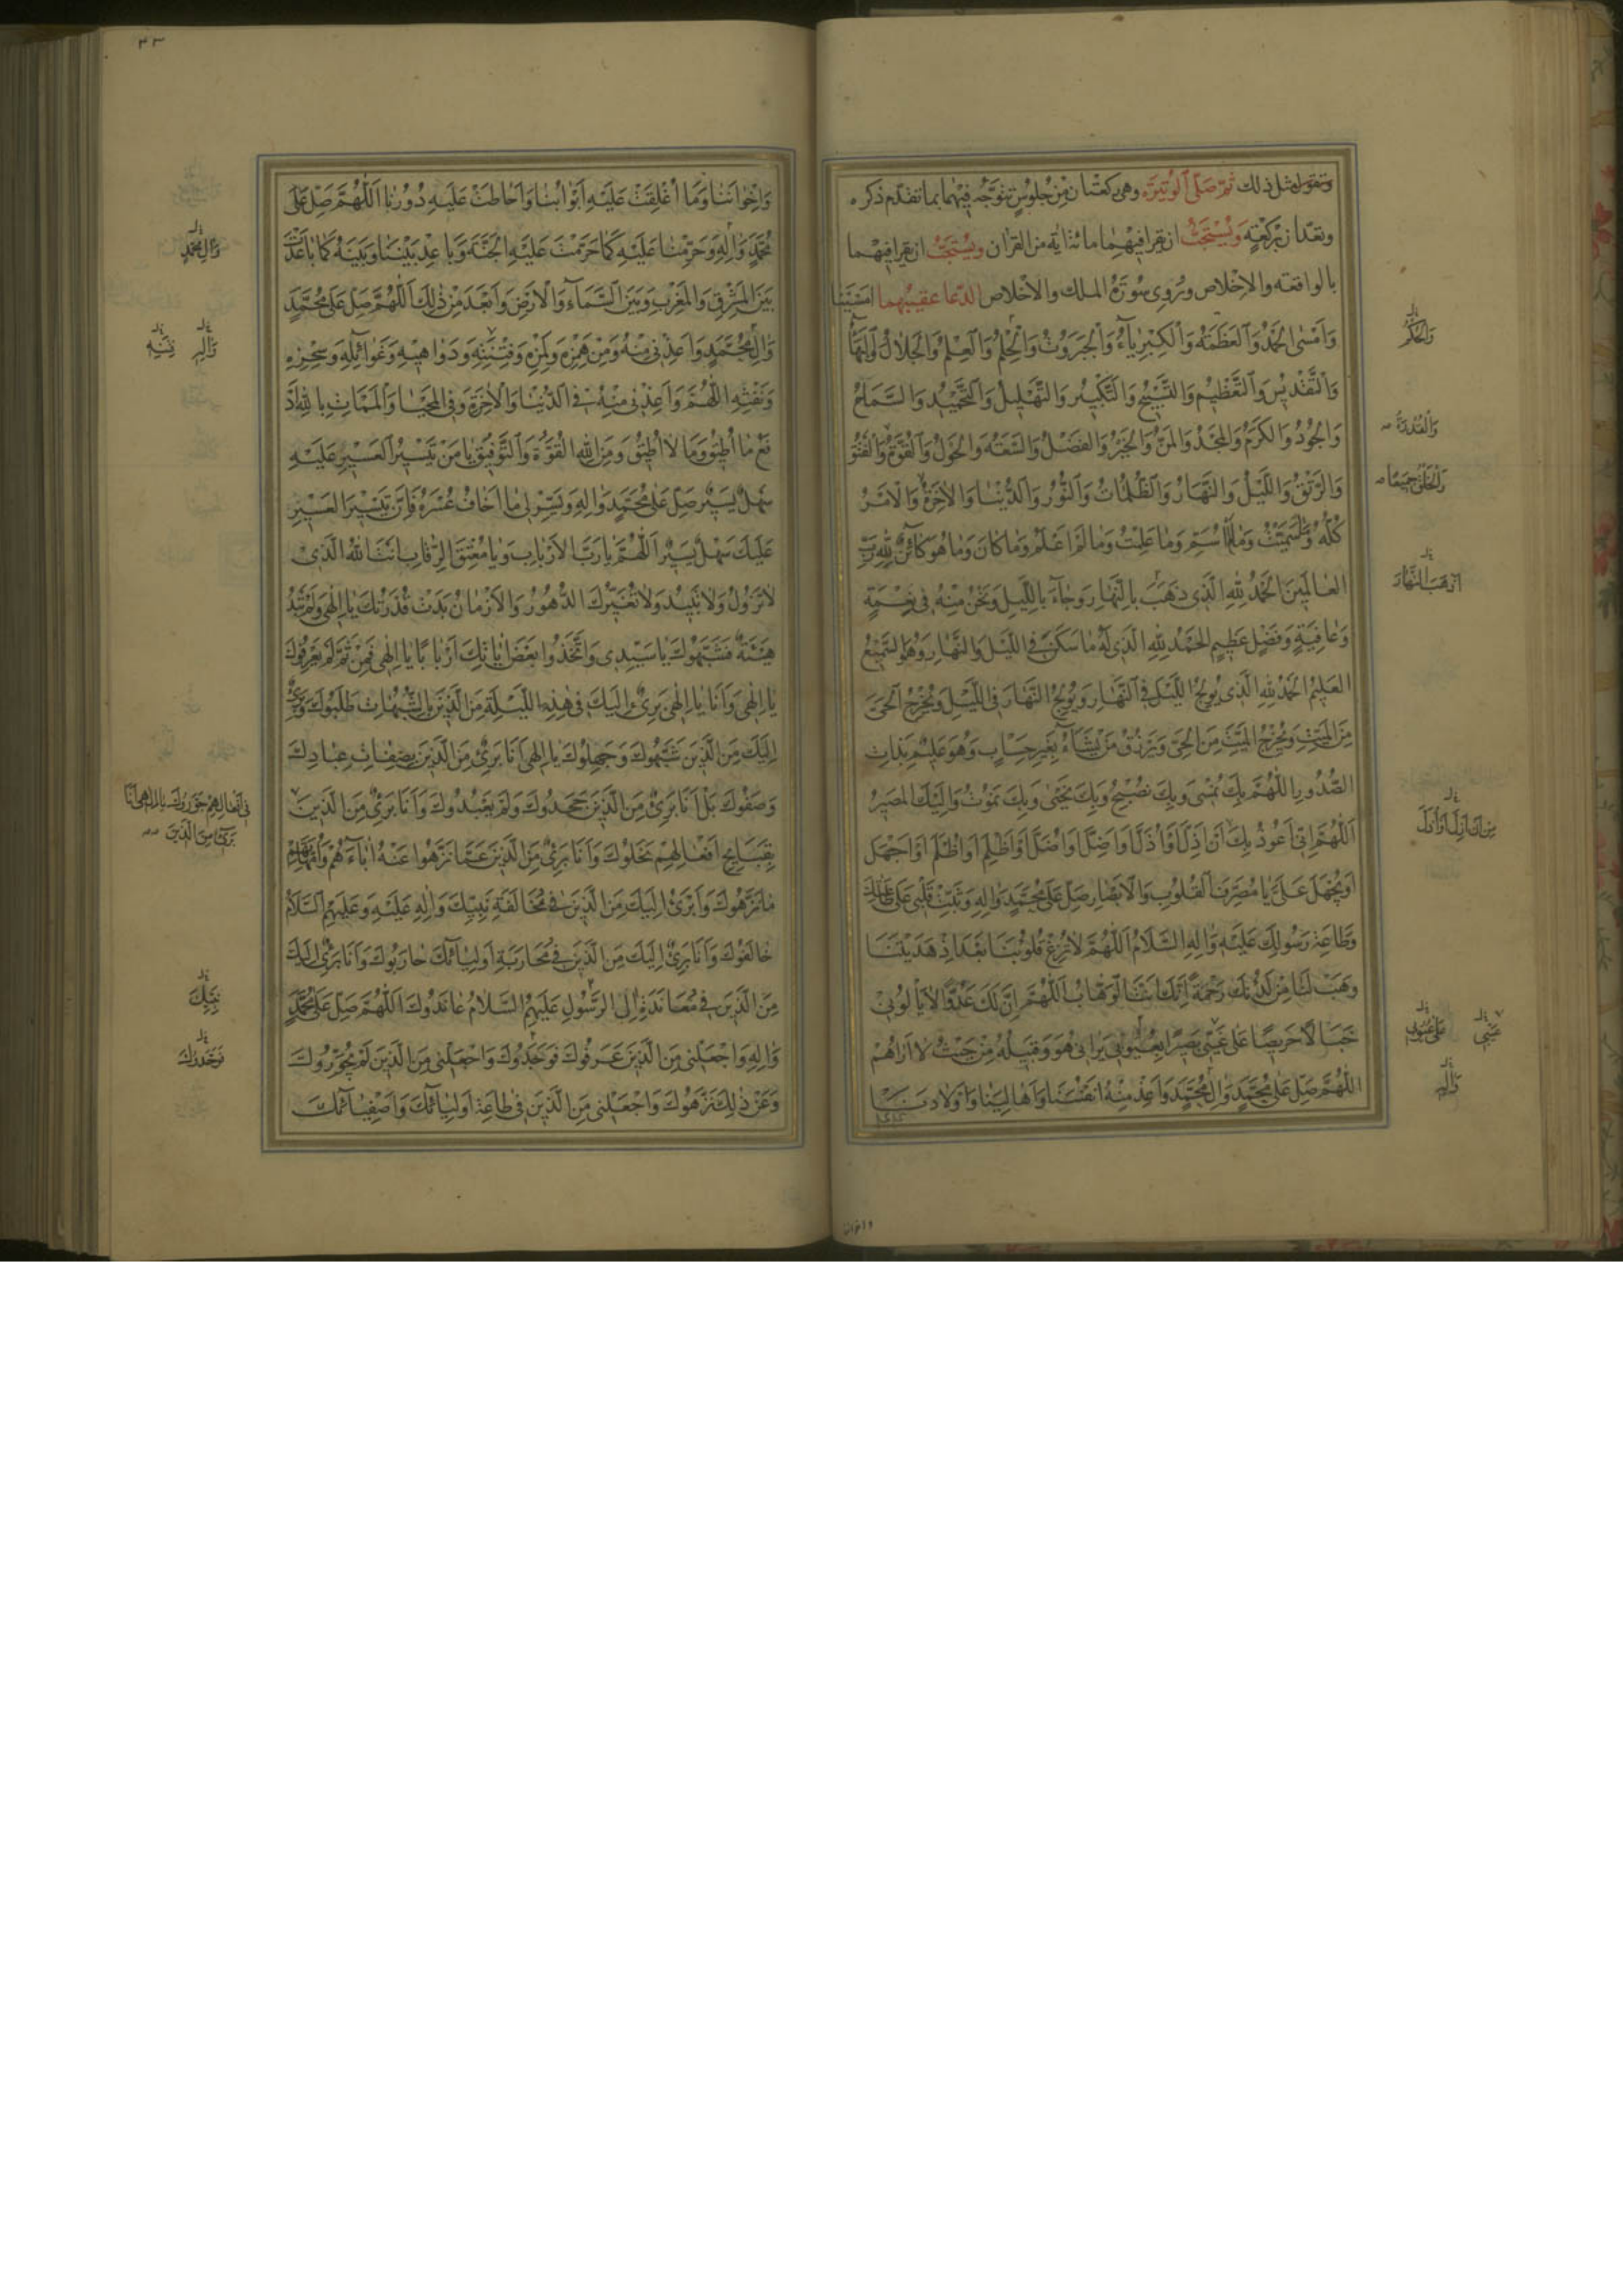 وتقول مثل ذلك ثم صل الوتيرة وهي ركعتان من جلوس تتوجه فيهما بما تقدم ذكره
وتعدان بركعة ويستحب ان يقرا فيهما مائة اية من القران ويستحب ان يقرا فيهما
بالواقعة والاخلاص وروي سورة الملك والاخلاص الدعا عقيبهما امسينا
وَاَمْسَى الْحَمْدُ وَالْعَظَمَةُ وَالْكِبْرِيَاءُ وَالْجَبَرُوتُ وَالْحِلْمُ وَالْعِلْمُ وَالْجَلَالُ وَالْبَهَاءُ
وَالتَّقْدِيسُ وَالتَّعْظِيمُ وَالتَّسْبِيحُ وَالتَّكْبِيرُ وَالتَّهْلِيلُ وَالتَّحْمِيدُ وَالسَّمَاحُ
وَالْجُودُ وَالْكَرَمُ وَالْمَجْدُ وَالْمَنُّ وَالْخَيْرُ وَالْفَضْلُ وَالسَّعَةُ وَالْحَوْلُ وَالْقُوَّةُ وَالْفَتْقُ
وَالرَّتْقُ وَاللَّيْلُ وَالنَّهَارُ وَالظُّلُمَاتُ وَالنُّورُ وَالدُّنْيَا وَالْاٰخِرَةُ وَالْاَمْرُ
كُلُّهُ وَمَا سَمَّيْتُ وَمَا لَمْ اُسَمِّ وَمَا عَلِمْتُ وَمَا لَمْ اَعْلَمْ وَمَا كَانَ وَمَا هُوَ كَائِنٌ لِلّٰهِ رَبِّ
الْعَالَمِينَ الْحَمْدُ لِلّٰهِ الَّذِي ذَهَبَ بِالنَّهَارِ وَجَاءَ بِاللَّيْلِ وَنَحْنُ مِنْهُ فِي نِعْمَةٍ
وَعَافِيَةٍ وَفَضْلٍ عَظِيمٍ الْحَمْدُ لِلّٰهِ الَّذِي لَهُ مَا سَكَنَ فِي اللَّيْلِ وَالنَّهَارِ وَهُوَ السَّمِيعُ
الْعَلِيمُ الْحَمْدُ لِلّٰهِ الَّذِي يُولِجُ اللَّيْلَ فِي النَّهَارِ وَيُولِجُ النَّهَارَ فِي اللَّيْلِ وَيُخْرِجُ الْحَيَّ
مِنَ الْمَيِّتِ وَيُخْرِجُ الْمَيِّتَ مِنَ الْحَيِّ وَيَرْزُقُ مَنْ يَشَاءُ بِغَيْرِ حِسَابٍ وَهُوَ عَلِيمٌ بِذَاتِ
الصُّدُورِ اَللّٰهُمَّ بِكَ نُمْسِي وَبِكَ نُصْبِحُ وَبِكَ نَحْيَى وَبِكَ نَمُوتُ وَاِلَيْكَ الْمَصِيرُ
اَللّٰهُمَّ اِنِّي اَعُوذُ بِكَ اَنْ اَذِلَّ اَوْ اُذِلَّ اَوْ اَضِلَّ اَوْ اُضِلَّ اَوْ اَظْلِمَ اَوْ اُظْلَمَ اَوْ اَجْهَلَ
اَوْ يُجْهَلَ عَلَيَّ يَا مُصَرِّفَ الْقُلُوبِ وَالْاَبْصَارِ صَلِّ عَلَى مُحَمَّدٍ وَاٰلِهِ وَثَبِّتْ قَلْبِي عَلَى طَاعَتِكَ
وَطَاعَةِ رَسُولِكَ عَلَيْهِ وَاٰلِهِ السَّلَامُ اَللّٰهُمَّ لَا تُزِغْ قُلُوبَنَا بَعْدَ اِذْ هَدَيْتَنَا
وَهَبْ لَنَا مِنْ لَدُنْكَ رَحْمَةً اِنَّكَ اَنْتَ الْوَهَّابُ اَللّٰهُمَّ اِنَّ لَكَ عَدُوًّا لَا يَأْلُونِي
خَبَالًا حَرِيصًا عَلَى غَيِّي بَصِيرًا بِعُيُوبِي يَرَانِي هُوَ وَقَبِيلُهُ مِنْ حَيْثُ لَا اَرَاهُمْ
اَللّٰهُمَّ صَلِّ عَلَى مُحَمَّدٍ وَاٰلِ مُحَمَّدٍ وَاَعِذْ مِنْهُ اَنْفُسَنَا وَاَهَالِيَنَا وَاَوْلَادَنَا
وَالْحُكْمُ
وَالْقُدْرَةُ
وَالْخَلْقُ جَمِيعًا
اَذْهَبَ النَّهَارَ
مِنْ اَنْ اَزِلَّ اَوْ اُزَلَّ
غَيِّي
عَلَى عُيُوبِي
وَاٰلِهِ
واخواننا
٣٣
وَاِخْوَانَنَا وَمَا اُغْلِقَتْ عَلَيْهِ اَبْوَابُنَا وَاَحَاطَتْ عَلَيْهِ دُورُنَا اَللّٰهُمَّ صَلِّ عَلَى
مُحَمَّدٍ وَاٰلِهِ وَحَرِّمْنَا عَلَيْهِ كَمَا حَرَّمْتَ عَلَيْهِ الْجَنَّةَ وَبَاعِدْ بَيْنَنَا وَبَيْنَهُ كَمَا بَاعَدْتَ
بَيْنَ الْمَشْرِقِ وَالْمَغْرِبِ وَبَيْنَ السَّمَاءِ وَالْاَرْضِ وَاَبْعَدَ مِنْ ذٰلِكَ اَللّٰهُمَّ صَلِّ عَلَى مُحَمَّدٍ
وَاٰلِ مُحَمَّدٍ وَاَعِذْنِي مِنْهُ وَمِنْ هَمْزِهِ وَلَمْزِهِ وَفِتْنَتِهِ وَدَوَاهِيهِ وَغَوَائِلِهِ وَسِحْرِهِ
وَنَفْثِهِ اَللّٰهُمَّ وَاَعِذْنِي مِنْهُ فِي الدُّنْيَا وَالْاٰخِرَةِ وَفِي الْمَحْيَا وَالْمَمَاتِ بِاللّٰهِ اَدْ
فَعُ مَا اُطِيقُ وَمَا لَا اُطِيقُ وَمِنَ اللّٰهِ الْقُوَّةُ وَالتَّوْفِيقُ يَا مَنْ تَيْسِيرُ الْعَسِيرِ عَلَيْهِ
سَهْلٌ يَسِيرٌ صَلِّ عَلَى مُحَمَّدٍ وَاٰلِهِ وَيَسِّرْ لِي مَا اَخَافُ عُسْرَهُ فَاِنَّ تَيْسِيرَ الْعَسِيرِ
عَلَيْكَ سَهْلٌ يَسِيرٌ اَللّٰهُمَّ يَا رَبَّ الْاَرْبَابِ وَيَا مُعْتِقَ الرِّقَابِ اَنْتَ اللّٰهُ الَّذِي
لَا تَزُولُ وَلَا تَبِيدُ وَلَا تُغَيِّرُكَ الدُّهُورُ وَالْاَزْمَانُ بَدَتْ قُدْرَتُكَ يَا اِلٰهِي وَلَمْ تَبْدُ
هَيْئَةٌ فَشَبَّهُوكَ يَا سَيِّدِي وَاتَّخَذُوا بَعْضَ اٰيَاتِكَ اَرْبَابًا يَا اِلٰهِي فَمِنْ ثَمَّ لَمْ يَعْرِفُوكَ
يَا اِلٰهِي وَاَنَا يَا اِلٰهِي بَرِيءٌ اِلَيْكَ فِي هٰذِهِ اللَّيْلَةِ مِنَ الَّذِينَ بِالشُّبُهَاتِ طَلَبُوكَ وَبَرِيءٌ
اِلَيْكَ مِنَ الَّذِينَ شَبَّهُوكَ وَجَهِلُوكَ يَا اِلٰهِي اَنَا بَرِيءٌ مِنَ الَّذِينَ بِصِفَاتِ عِبَادِكَ
وَصَفُوكَ بَلْ اَنَا بَرِيءٌ مِنَ الَّذِينَ جَحَدُوكَ وَلَمْ يَعْبُدُوكَ وَاَنَا بَرِيءٌ مِنَ الَّذِينَ
بِقَبَائِحِ اَفْعَالِهِمْ نَحَلُوكَ وَاَنَا بَرِيءٌ مِنَ الَّذِينَ عَمَّا نَزَّهُوا عَنْهُ اٰبَاءَهُمْ وَاُمَّهَاتِهِمْ
مَا نَزَّهُوكَ وَاَبْرَئُ اِلَيْكَ مِنَ الَّذِينَ فِي مُخَالَفَةِ نَبِيِّكَ وَاٰلِهِ عَلَيْهِ وَعَلَيْهِمُ السَّلَامُ
خَالَفُوكَ وَاَنَا بَرِيءٌ اِلَيْكَ مِنَ الَّذِينَ فِي مُحَارَبَةِ اَوْلِيَائِكَ حَارَبُوكَ وَاَنَا بَرِيءٌ اِلَيْكَ
مِنَ الَّذِينَ فِي مُعَانَدَةِ اٰلِ الرَّسُولِ عَلَيْهِمُ السَّلَامُ عَانَدُوكَ اَللّٰهُمَّ صَلِّ عَلَى مُحَمَّدٍ
وَاٰلِهِ وَاجْعَلْنِي مِنَ الَّذِينَ عَرَفُوكَ فَوَحَّدُوكَ وَاجْعَلْنِي مِنَ الَّذِينَ لَمْ يُجَوِّرُوكَ
وَعَنْ ذٰلِكَ نَزَّهُوكَ وَاجْعَلْنِي مِنَ الَّذِينَ فِي طَاعَةِ اَوْلِيَائِكَ وَاَصْفِيَائِكَ
وَاٰلِ مُحَمَّدٍ
وَاٰلِهِ
فِي اَفْعَالِهِمْ جَوَّرُوكَ يَا اِلٰهِي اَنَا
بَرِيءٌ مِنَ الَّذِينَ
نَبِيِّكَ